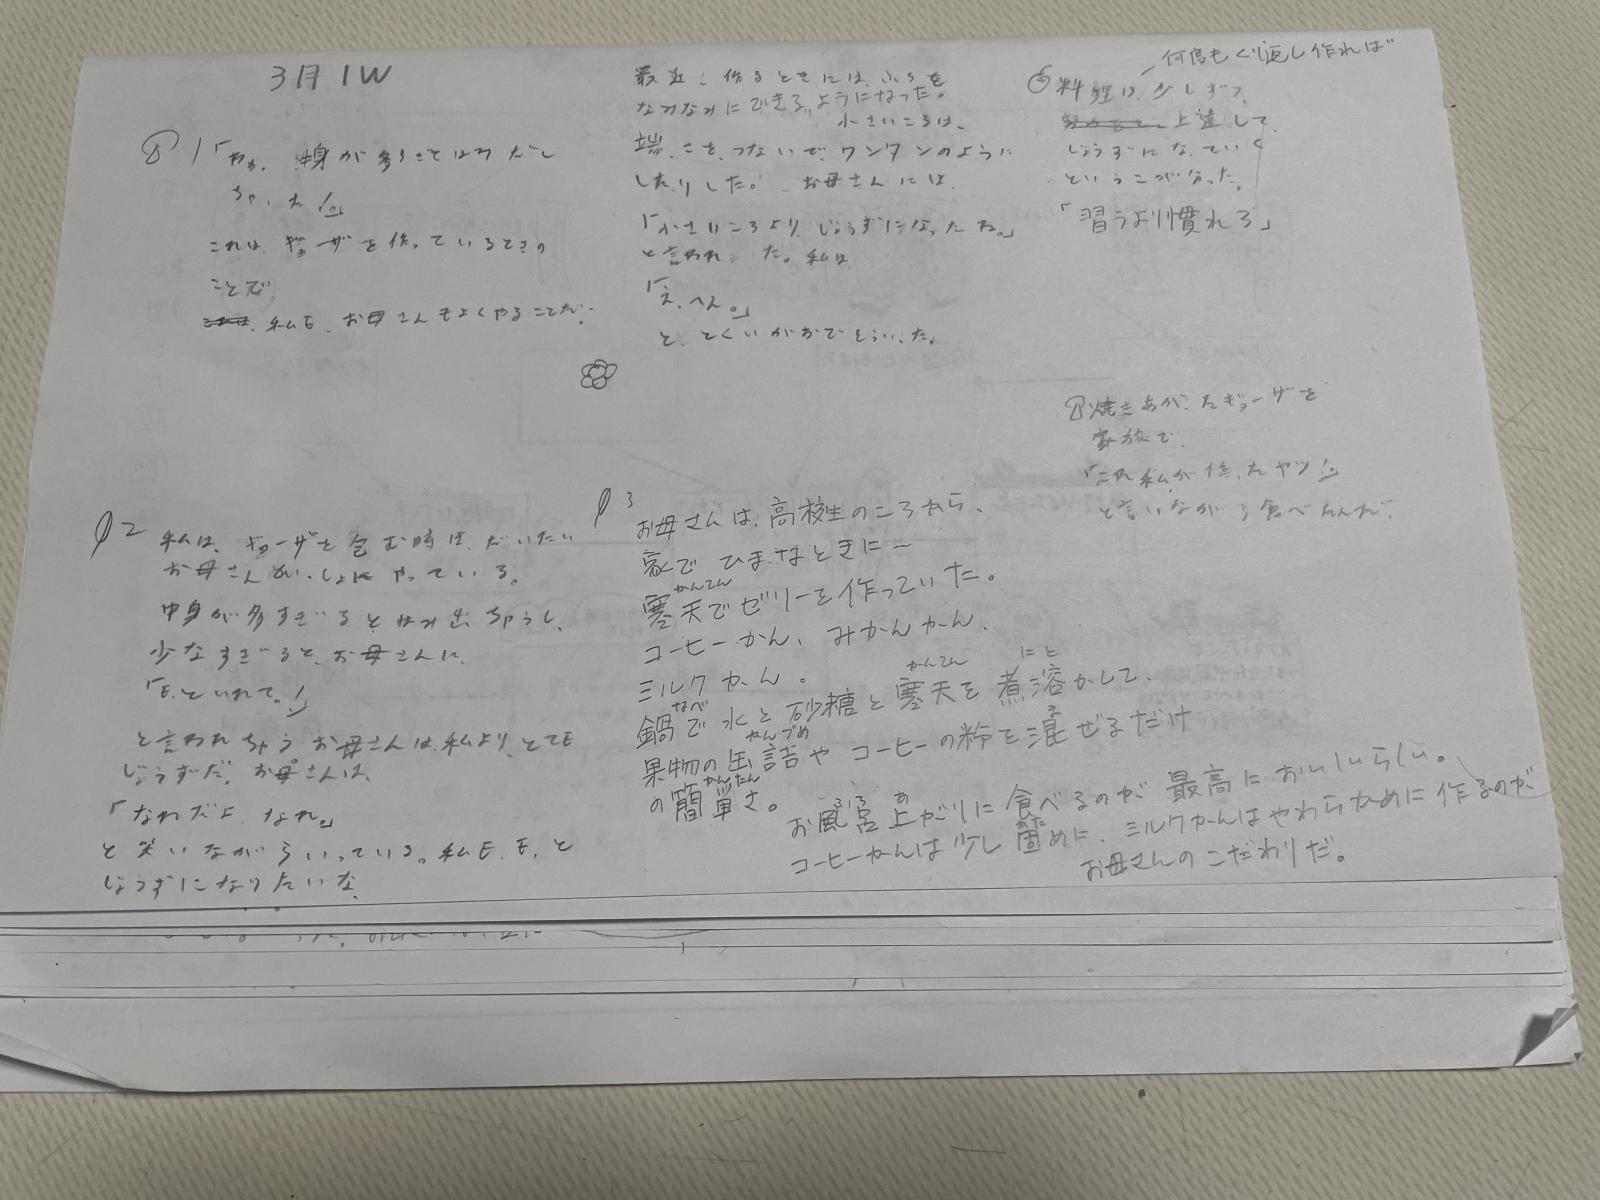 3月1W
① 1「わぁ、中身が多くてはみだし
ちゃった!」
これは、ギョーザを作っているときの
ことで、
私も、お母さんもよくやることだ。
P2 私は、ギョーザを包む時は、だいたい
お母さんといっしょにやっている。
中身が多すぎるとはみ出ちゃうし、
少なすぎると、お母さんに、
「もっといれて。!」
と言われちゃう お母さんは、私より、とても
じょうずだ。お母さんは、
「なれだよ、なれ。」
と笑いながらいっている。私も、もっと
じょうずになりたいな
最近、作るときには、ふちを
なみなみにできるようになった。
小さいころは、
端っこを、つないで、ワンタンのように
したりした。お母さんには、
「小さいころより、じょうずになったね。」
と言われた。私は
「え、へん。」
と、とくいがおでそういった。
P3
お母さんは、高校生のころから、
家で ひまなときに〜
かんてん
寒天でゼリーを作っていた。
コーヒーかん、みかんかん、
ミルクかん。
なべ かんてん にと
鍋で水と砂糖と寒天を煮溶かして、
かんづめ ま
果物の缶詰や コーヒーの粉を混ぜるだけ
かんたん
の簡単さ。
ふろ あ
お風呂上がりに食べるのが 最高においしいらしい。
かた
コーヒーかんは少し固めに、ミルクかんはやわらかめに作るのが
お母さんのこだわりだ。
何度もくり返し作れば
⑤ 料理は、少しずつ、
上達して、
じょうずになってい
ということが分った。
「習うより慣れろ」
① 焼きあがったギョーザを
家族で、
「これ私が作ったヤツ!」
と言いながら食べたんだ。